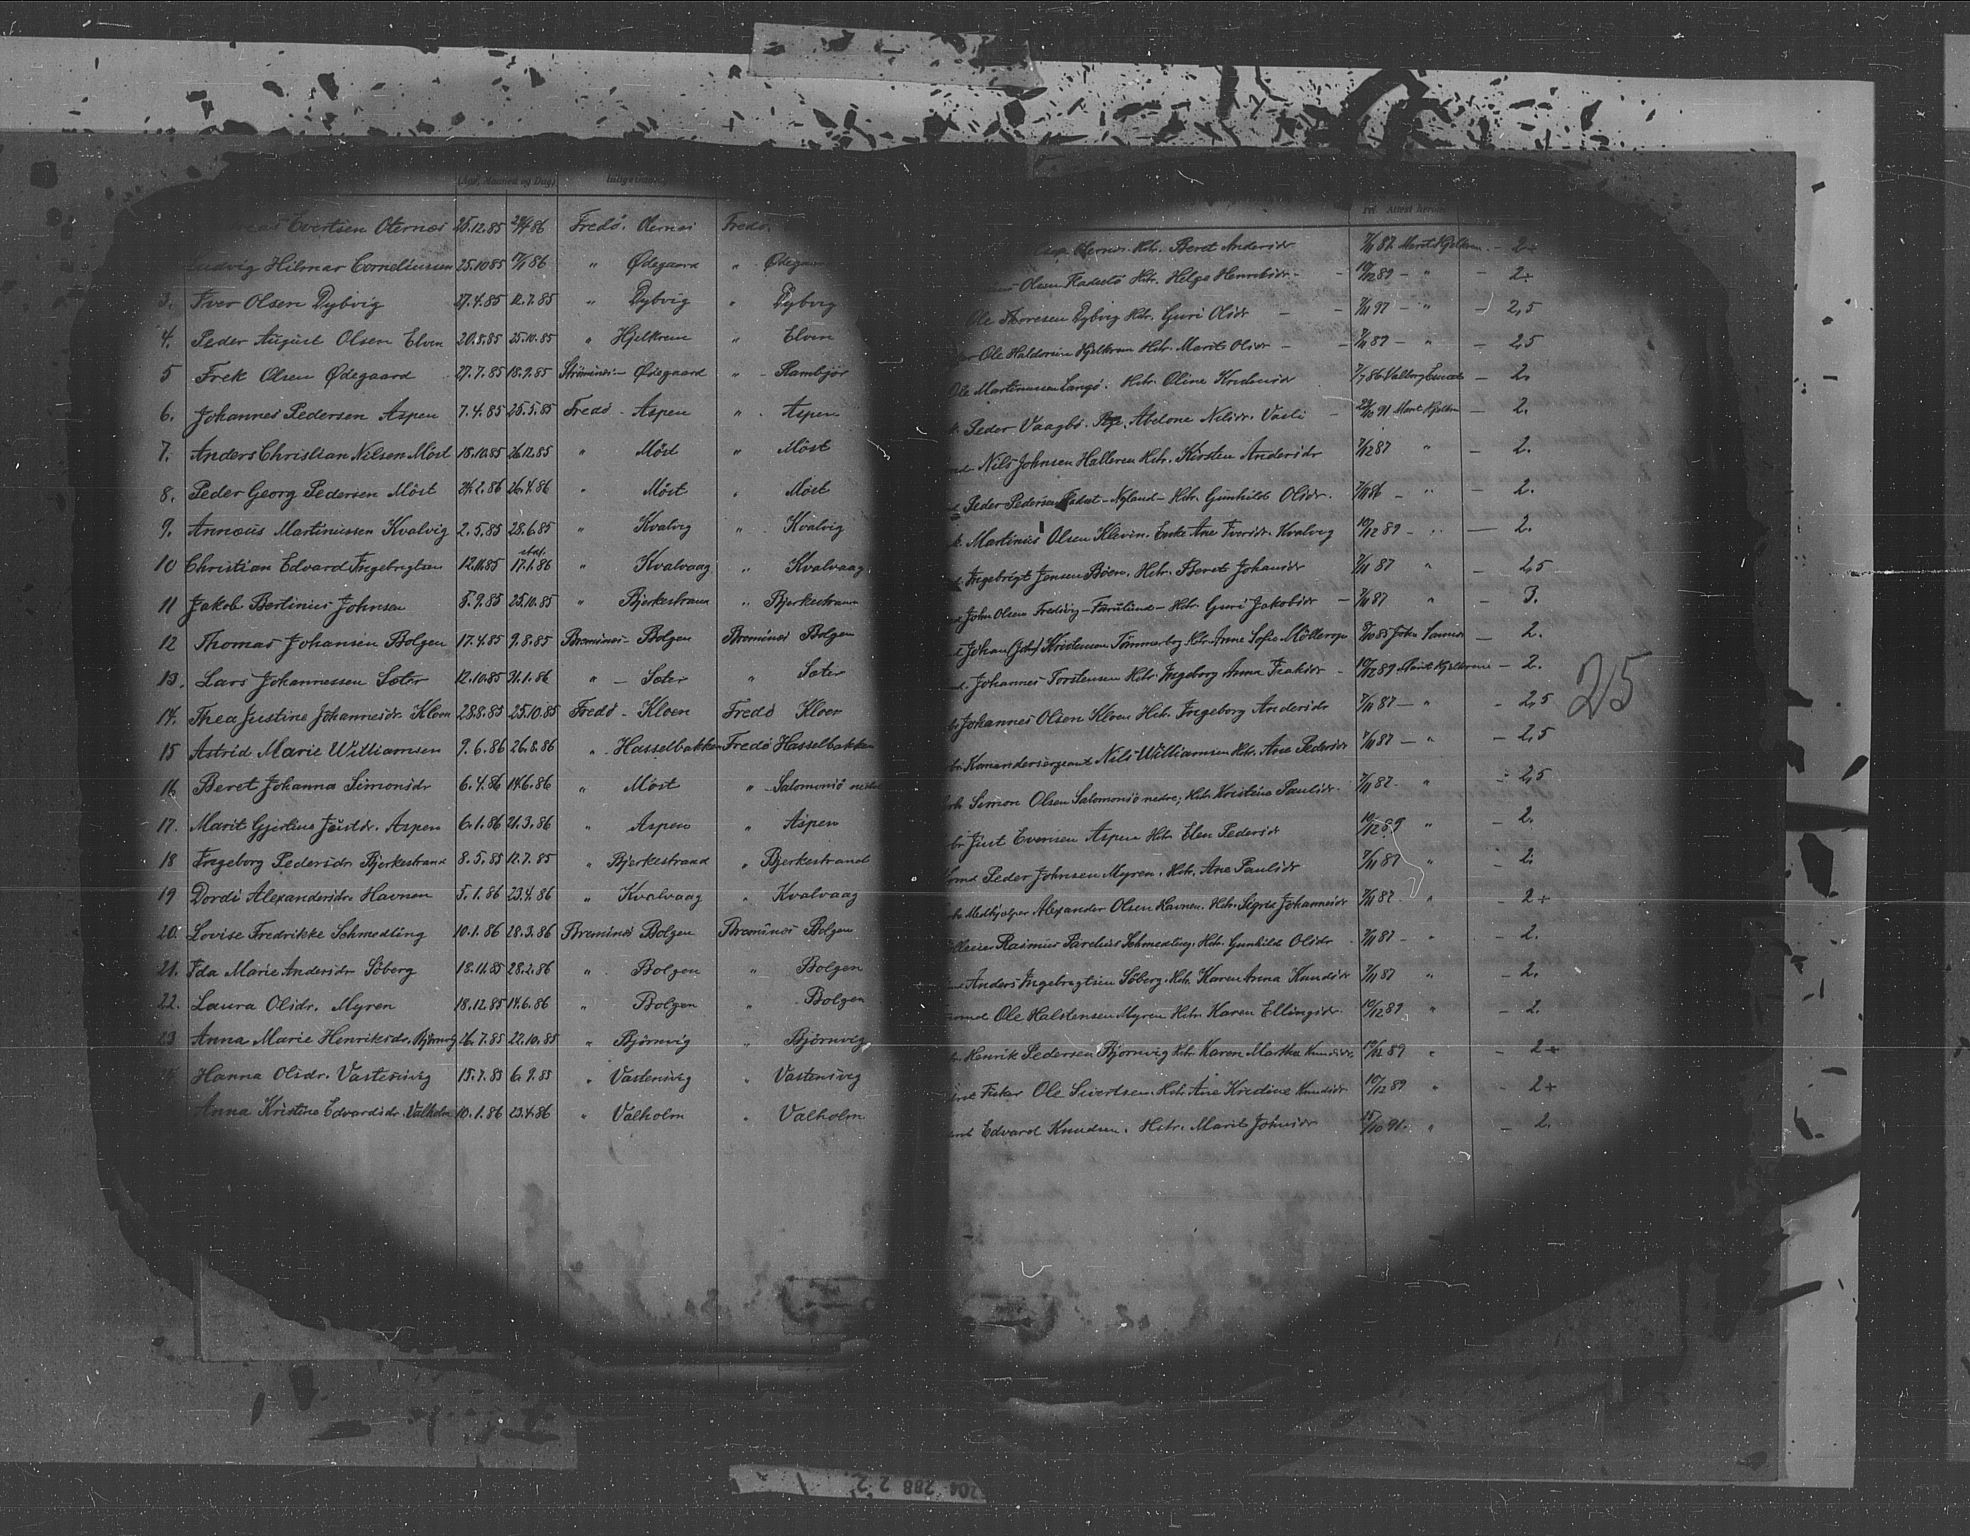 (Aar, Maaned og Dag)
Evertsen Oternes 25.12.85 86 Fredö. Oernes Fredö.
Ludvig Hilmar Corneliussen 25.10.85 86 " Ødegaard " Ødegaard
3. Iver Olsen Dybvig 27.4.85 12.7.85 " Dybvig " Dybvig
4. Peder August Olsen Elven 20.8.85 25.10.85 " Hjelkrem " Elven
5 Frek Olsen Ødegaard 27.7.85 18.9.85 Strömsnes - Ødegaard " - Rambjör
6. Johannes Pedersen Aspen 7.4.85 25.5.85 Fredö - Aspen " - Aspen
7. Anders Christian Nilsen Möst 18.10.85 26.12.85 " Möst " Möst
8. Peder Georg Pedersen Möst 24.2.86 26.4.86 " Möst " Möst
9. Annæus Martiniussen Kvalvig 2.5.85 28.6.85 " Kvalvig " Kvalvig
10 Christian Edvard Ingebrigtsen 12.11.85 17.1.86 " Kvalvaag " Kvalvaag
11 Jakob Bertinius Johnsen 5.9.85 25.10.85 " Bjerkestrand " Bjerkestrand
12 Thomas Johansen Bolgen 17.4.85 9.8.85 Bremsnes - Bolgen Bremsnes Bolgen
13. Lars Johannessen Sæter 12.10.85 21.1.86 " - Sæter " Sæter
14. Thea Justine Johannesdr. Kloen 28.8.85 25.10.85 Fredö - Kloen Fredö Kloen
15 Astrid Marie Williamsen 9.6.86 26.8.86 " Hasselbakken Fredö Hasselbakken
16 Beret Johanna Simonsdr 6.4.86 14.6.86 " Möst " Salomonsö nedre
17. Marit Gjertine Justdr. Aspen 6.1.86 21.3.86 " Aspen " Aspen
18 Ingeborg Pedersdr Bjerkestrand 8.5.85 12.7.85 " Bjerkestrand " Bjerkestrand
19 Dordi Alexandersdr. Havnen 5.1.86 23.4.86 " Kvalvaag " Kvalvaag
20. Lovise Fredrikke Schmedling 10.1.86 28.3.86 Bremsnes Bolgen Bremsnes Bolgen
21. Ida Marie Andersdr Söberg 18.11.85 28.2.86 " Bolgen " Bolgen
22. Laura Olsdr. Myren 18.12.85 14.6.86 " Bolgen " Bolgen
23 Anna Marie Henriksdr. Björnvig 26.7.85 22.10.85 " Björnvig " Björnvig
Hanna Olsdr. Vastensvig 15.7.85 6.9.85 " Vastensvig " Vastensvig
Anna Kristine Edvardsdr. Valholm 10.1.86 23.4.86 " Valholm " Valholm
Oernes. Htr. Beret Andersdr 7/11 87 Marit Kjelkrem - 2+
Olsen Fladsetö Htr. Helge Henriksdr - 10/12 89 - " - 2+
Ole Thoresen Dybvig Htr. Guri Olsdr - " - 2,5
Ole Haldorsen Hjelkrem Htr. Marit Olsdr - 7/11 87 - " - 2,5
Ole Martinussen Langö. Htr. Oline Knudsdr 7/7 86 Valborg - 2.
Peder Vaagbö. Pige. Abelone Nilsdr. Vasli - 91 Marit Kjelkrem - 2.
Nils Johnsen Halleren Htr. Kirsten Andersdr 87 " - 2.
Peder Pedersen Fladset - Nyland - Htr. Gunhild Olsdr. 86 - " - 2.
Martinius Olsen Kleven. Enke Ane Iversdr. Kvalvig 10/12 89 - " - 2.
Ingebrigt Jensen Böen. Htr. Beret Johansdr 7/11 87 " - 2,5
John Olsen Fredvig - Htr Guri Jakobsdr - 7/11 87 " - 3.
Johan (John) Kristensen Tömmerbog Htr. Anne Sofie Möllerop 85 John - 2.
Johannes Torstensen Htr. Ingeborg Anna Isaksdr - 10/12 89 Marit Kjelkrem - 2.
Johannes Olsen Kloen Htr. Ingeborg Andersdr 7/11 87 - " - 2,5
Komandersergeant Nils Williamsen Htr. Ane Pedersdr 7/11 87 - " - 2,5
Simon Olsen Salomonsö nedre; Htr. Kristine Paulsdr. 7/11 87. " - 2,5
Just Evensen Aspen Htr Elen Pedersdr 10/12 89 " - 2.
Peder Johnsen Myren. Htr. Ane Paulsdr 7/11 87 " - 2.
Medhjælper Alexander Olsen Havnen. Htr. Sigrid Johannesdr 7/11 87. " - 2+
Rasmus Parelius Schmedling. Htr. Gunhild Olsdr. 7/11 87 - " - 2.
Anders Ingebregtsen Söberg. Htr. Karen Anna Knudsdr 7/11 87 " - 2.
Ole Halstensen Myren Htr. Karen Ellingsdr. 10/12 89 " - 2.
Henrik Pedersen Bjornvig Htr. Karen Martha Knudsdr. 10/12 89 " - 2+
Fisker Ole Sivertsen. Htr. Ane Kristine Knudsdr 10/12 89 " - 2+
Edvard Knudsen. Htr. Marit Johnsdr 15/10 91. " - 2.
25
204 288 2 2